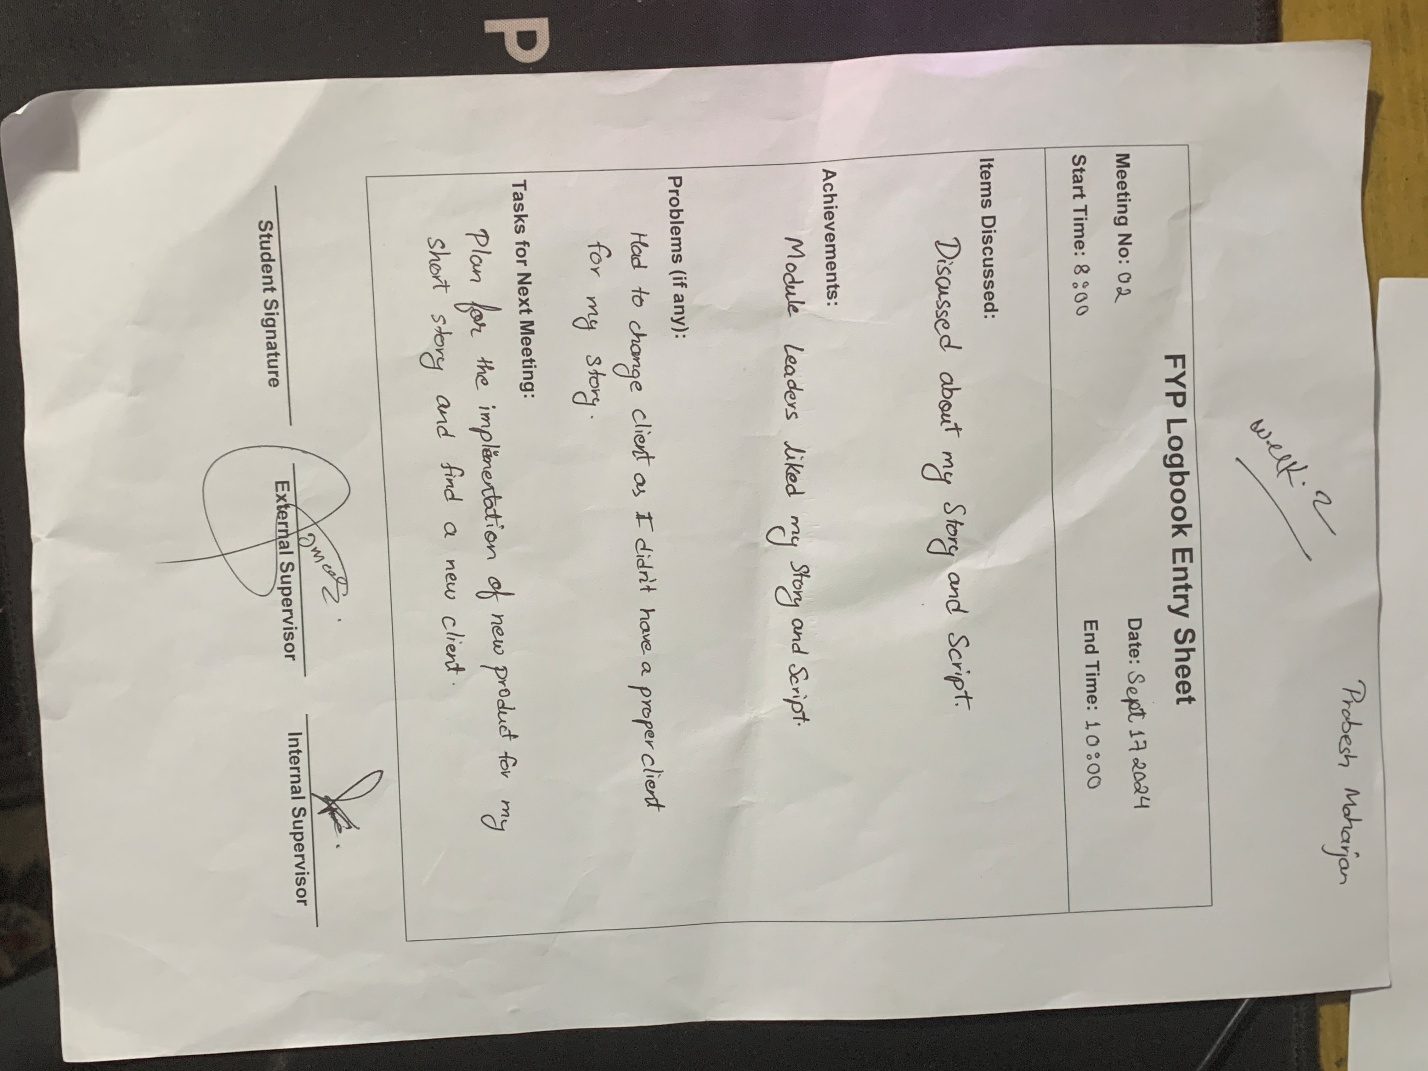 P
Probesh Maharjan
week: 2
FYP Logbook Entry Sheet
Meeting No: 02 Date: Sept 17 2024
Start Time: 8:00 End Time: 10:00
Items Discussed:
Discussed about my Story and Script.
Achievements:
Module Leaders liked my Story and Script.
Problems (if any):
Had to change client as I didn't have a proper client
for my story.
Tasks for Next Meeting:
Plan for the implementation of new product for my
short story and find a new client.
Student Signature External Supervisor Internal Supervisor